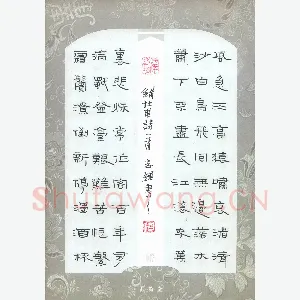 風急天高猿嘯哀渚清
沙白鳥飛迴無邊落木
蕭〻下不盡長江滾〻來萬
裏悲秋常作客百年多
病獨登臺艱難苦恨繁
霜鬢潦倒新停濁酒杯
錄杜甫詩一首
Shufawang.CN